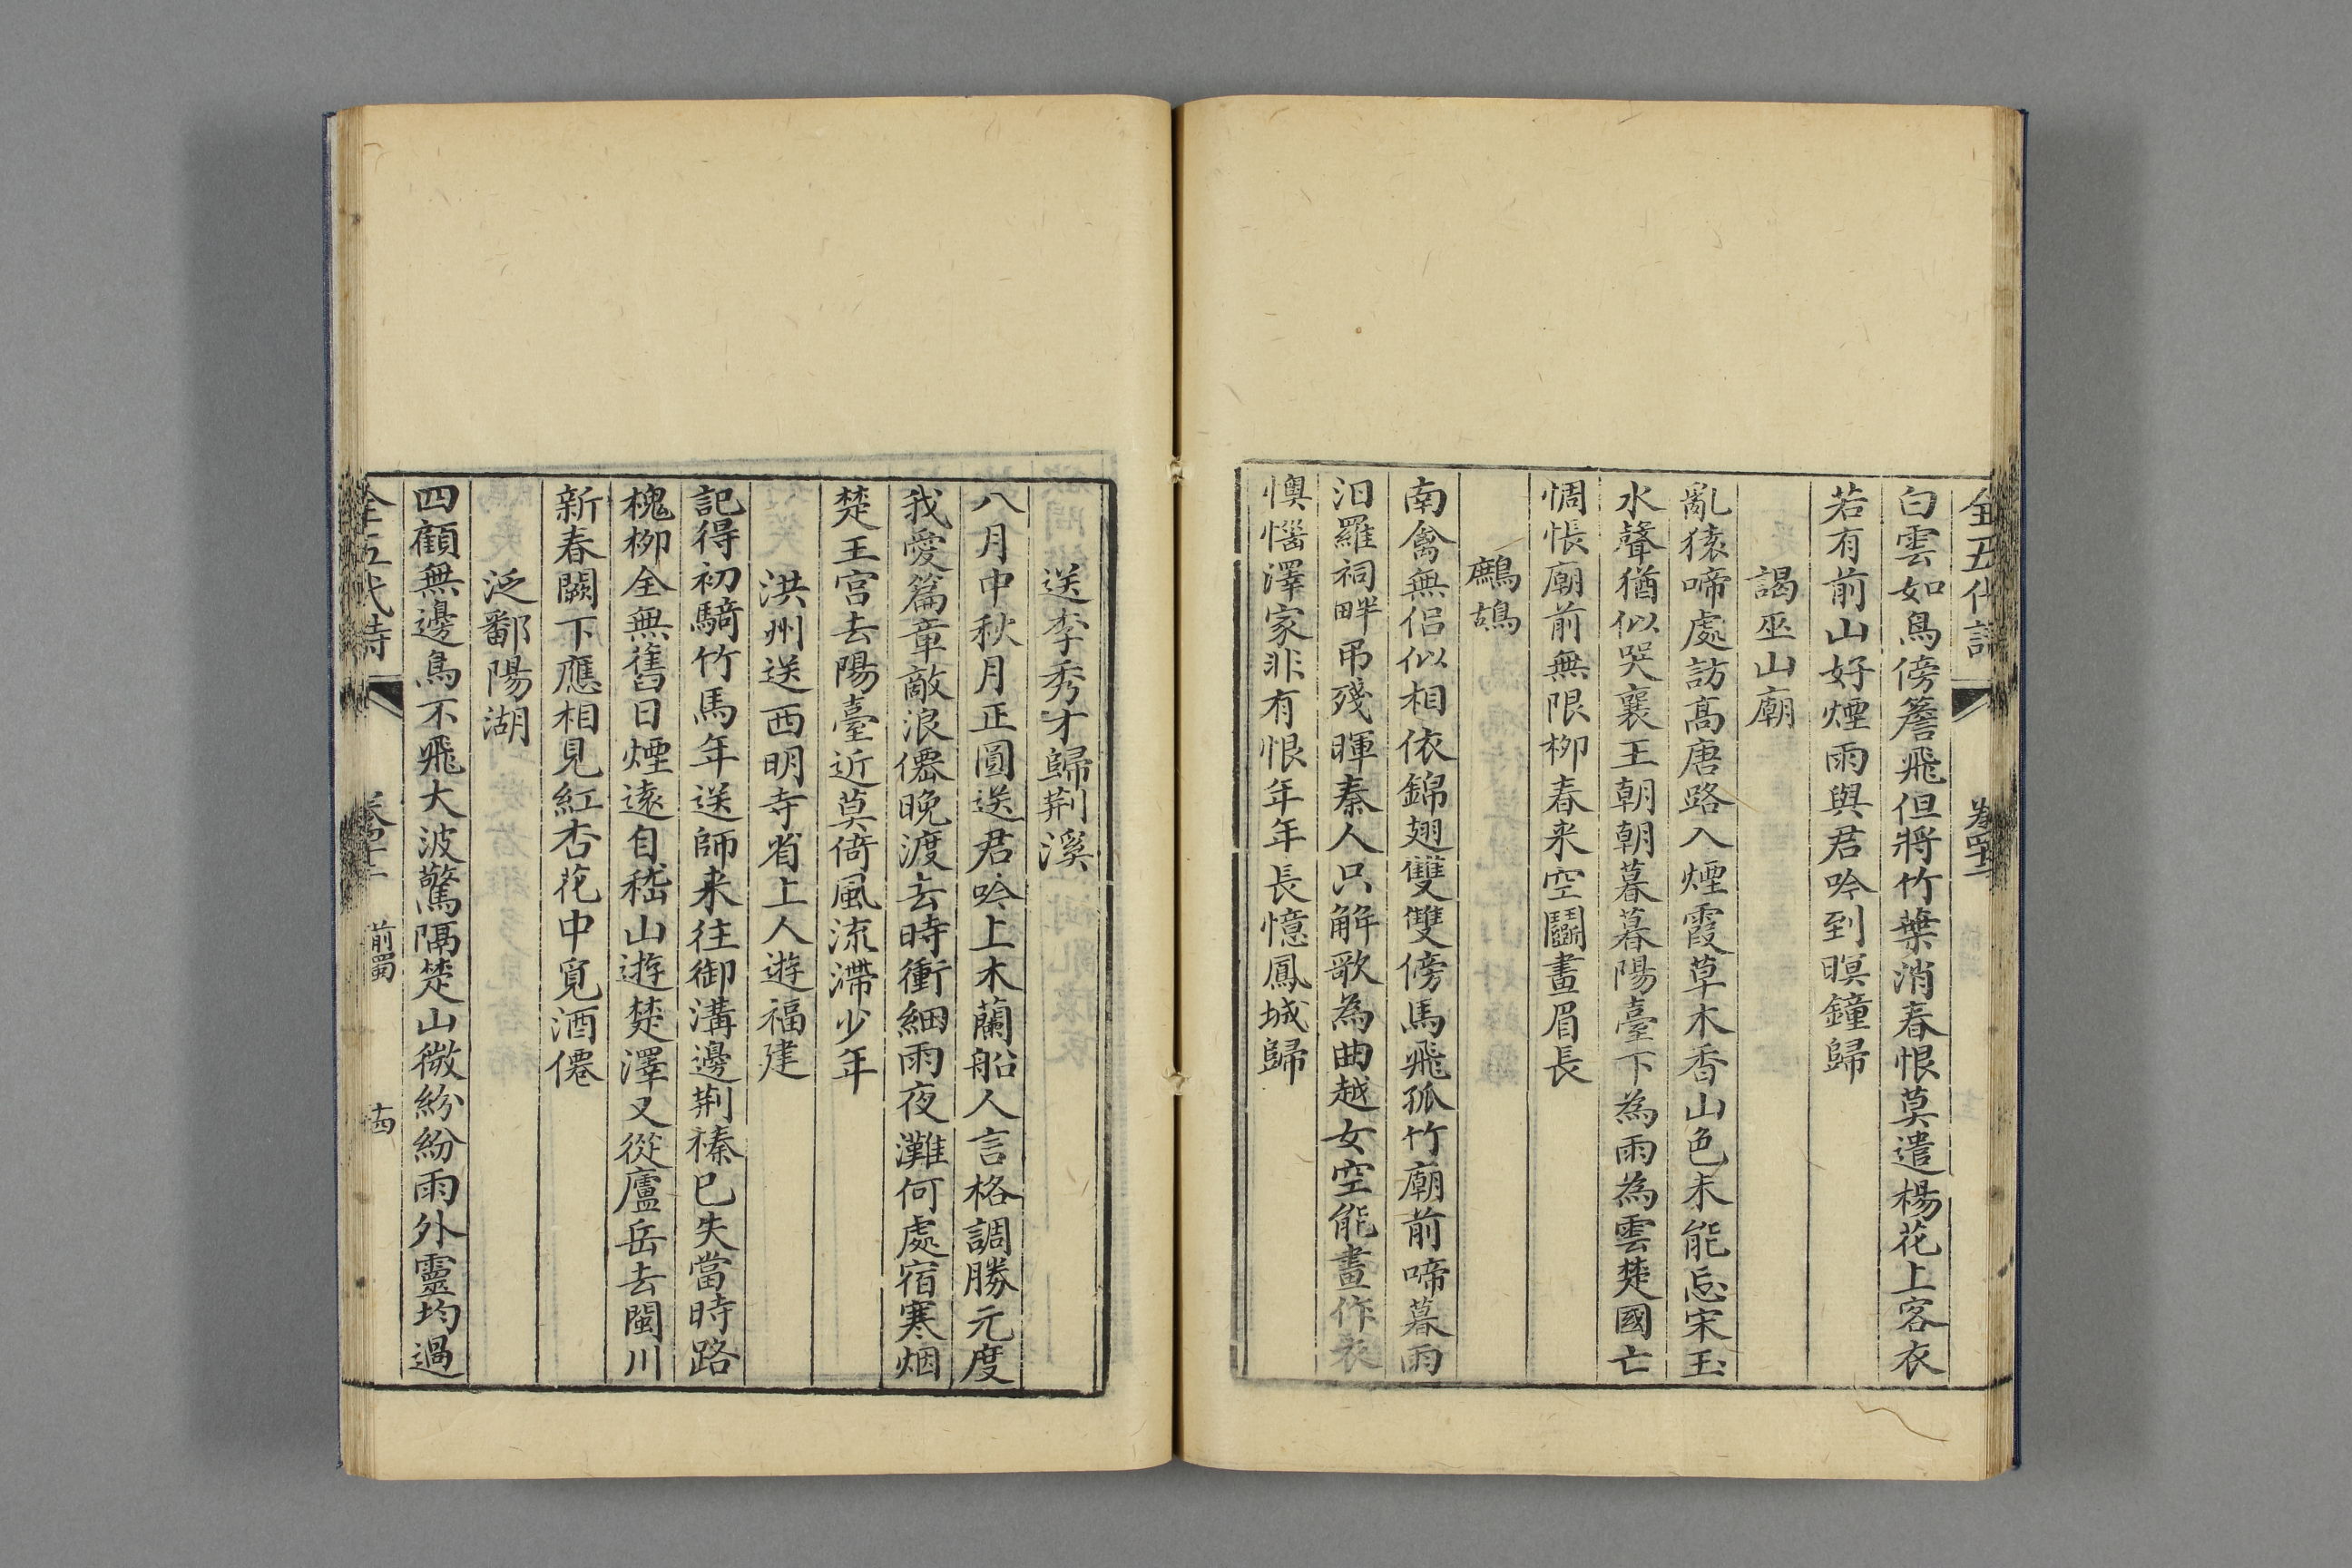 全五代詩
白雲如鳥傍簷飛但將竹葉消春恨莫遣楊花上客衣
若有前山好煙雨與君吟到暝鐘歸
謁巫山廟
亂猿啼處訪高唐路入煙霞草木香山色未能忘宋玉
水聲猶似哭襄王朝朝暮暮陽臺下為雨為雲楚國亡
惆悵廟前無限柳春来空鬭畫眉長
鷓鴣
南禽無侣似相依錦翅雙雙傍馬飛孤竹廟前啼暮雨
汨羅祠畔弔殘暉秦人只解歌為曲越女空能畫作衣
懊惱澤家非有恨年年長憶鳳城歸
送李秀才歸荆溪
八月中秋月正圓送君吟上木蘭船人言格調勝元度
我愛篇章敵浪僊晚渡去時衝細雨夜灘何處宿寒烟
楚王宫去陽臺近莫倚風流滯少年
洪州送西明寺省上人遊福建
記得初騎竹馬年送師来往御溝邊荆榛已失當時路
槐栁全無舊日煙遠自嵇山遊楚澤又從廬岳去閩川
新春闕下應相見紅杏花中覓酒僊
泛鄱陽湖
四顧無邊鳥不飛大波驚隔楚山微紛紛雨外靈均過
全五代詩 前蜀 十四